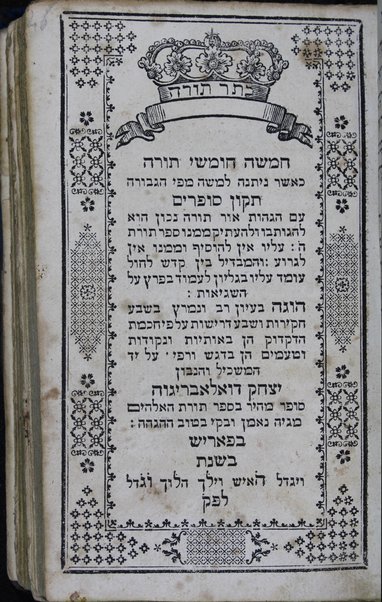 כתר תורה
חמשה חומשי תורה
כאשר ניתנה למשה מפי הגבורה
תקון סופרים
עם הגהות אור תורה נכון הוא
להגות בו ולהעתיק ממנו ספר תורת
ה׃ עליו אין להוסיף וממנו אין
לגרוע ׃ והמבדיל בין קדש לחול
עומד עליו בגליון לעמוד בפרץ על
השגיאות ׃
הוגה בעיון רב ונמרץ בשבע
חקירות ושבע דרישות על פי חכמת
הדקדוק הן באותיות ונקודות
וטעמים הן בדגש ורפי ׳ על יד
המשכיל והנבון
יצחק דואלאבריגוה
סופר מהיר בספר תורת האלהים
מגיה נאמן ובקי בטוב ההגהה ׃
בפאריש
בשנת
ויגדל האיש וילך הלוך וגדל
לפק